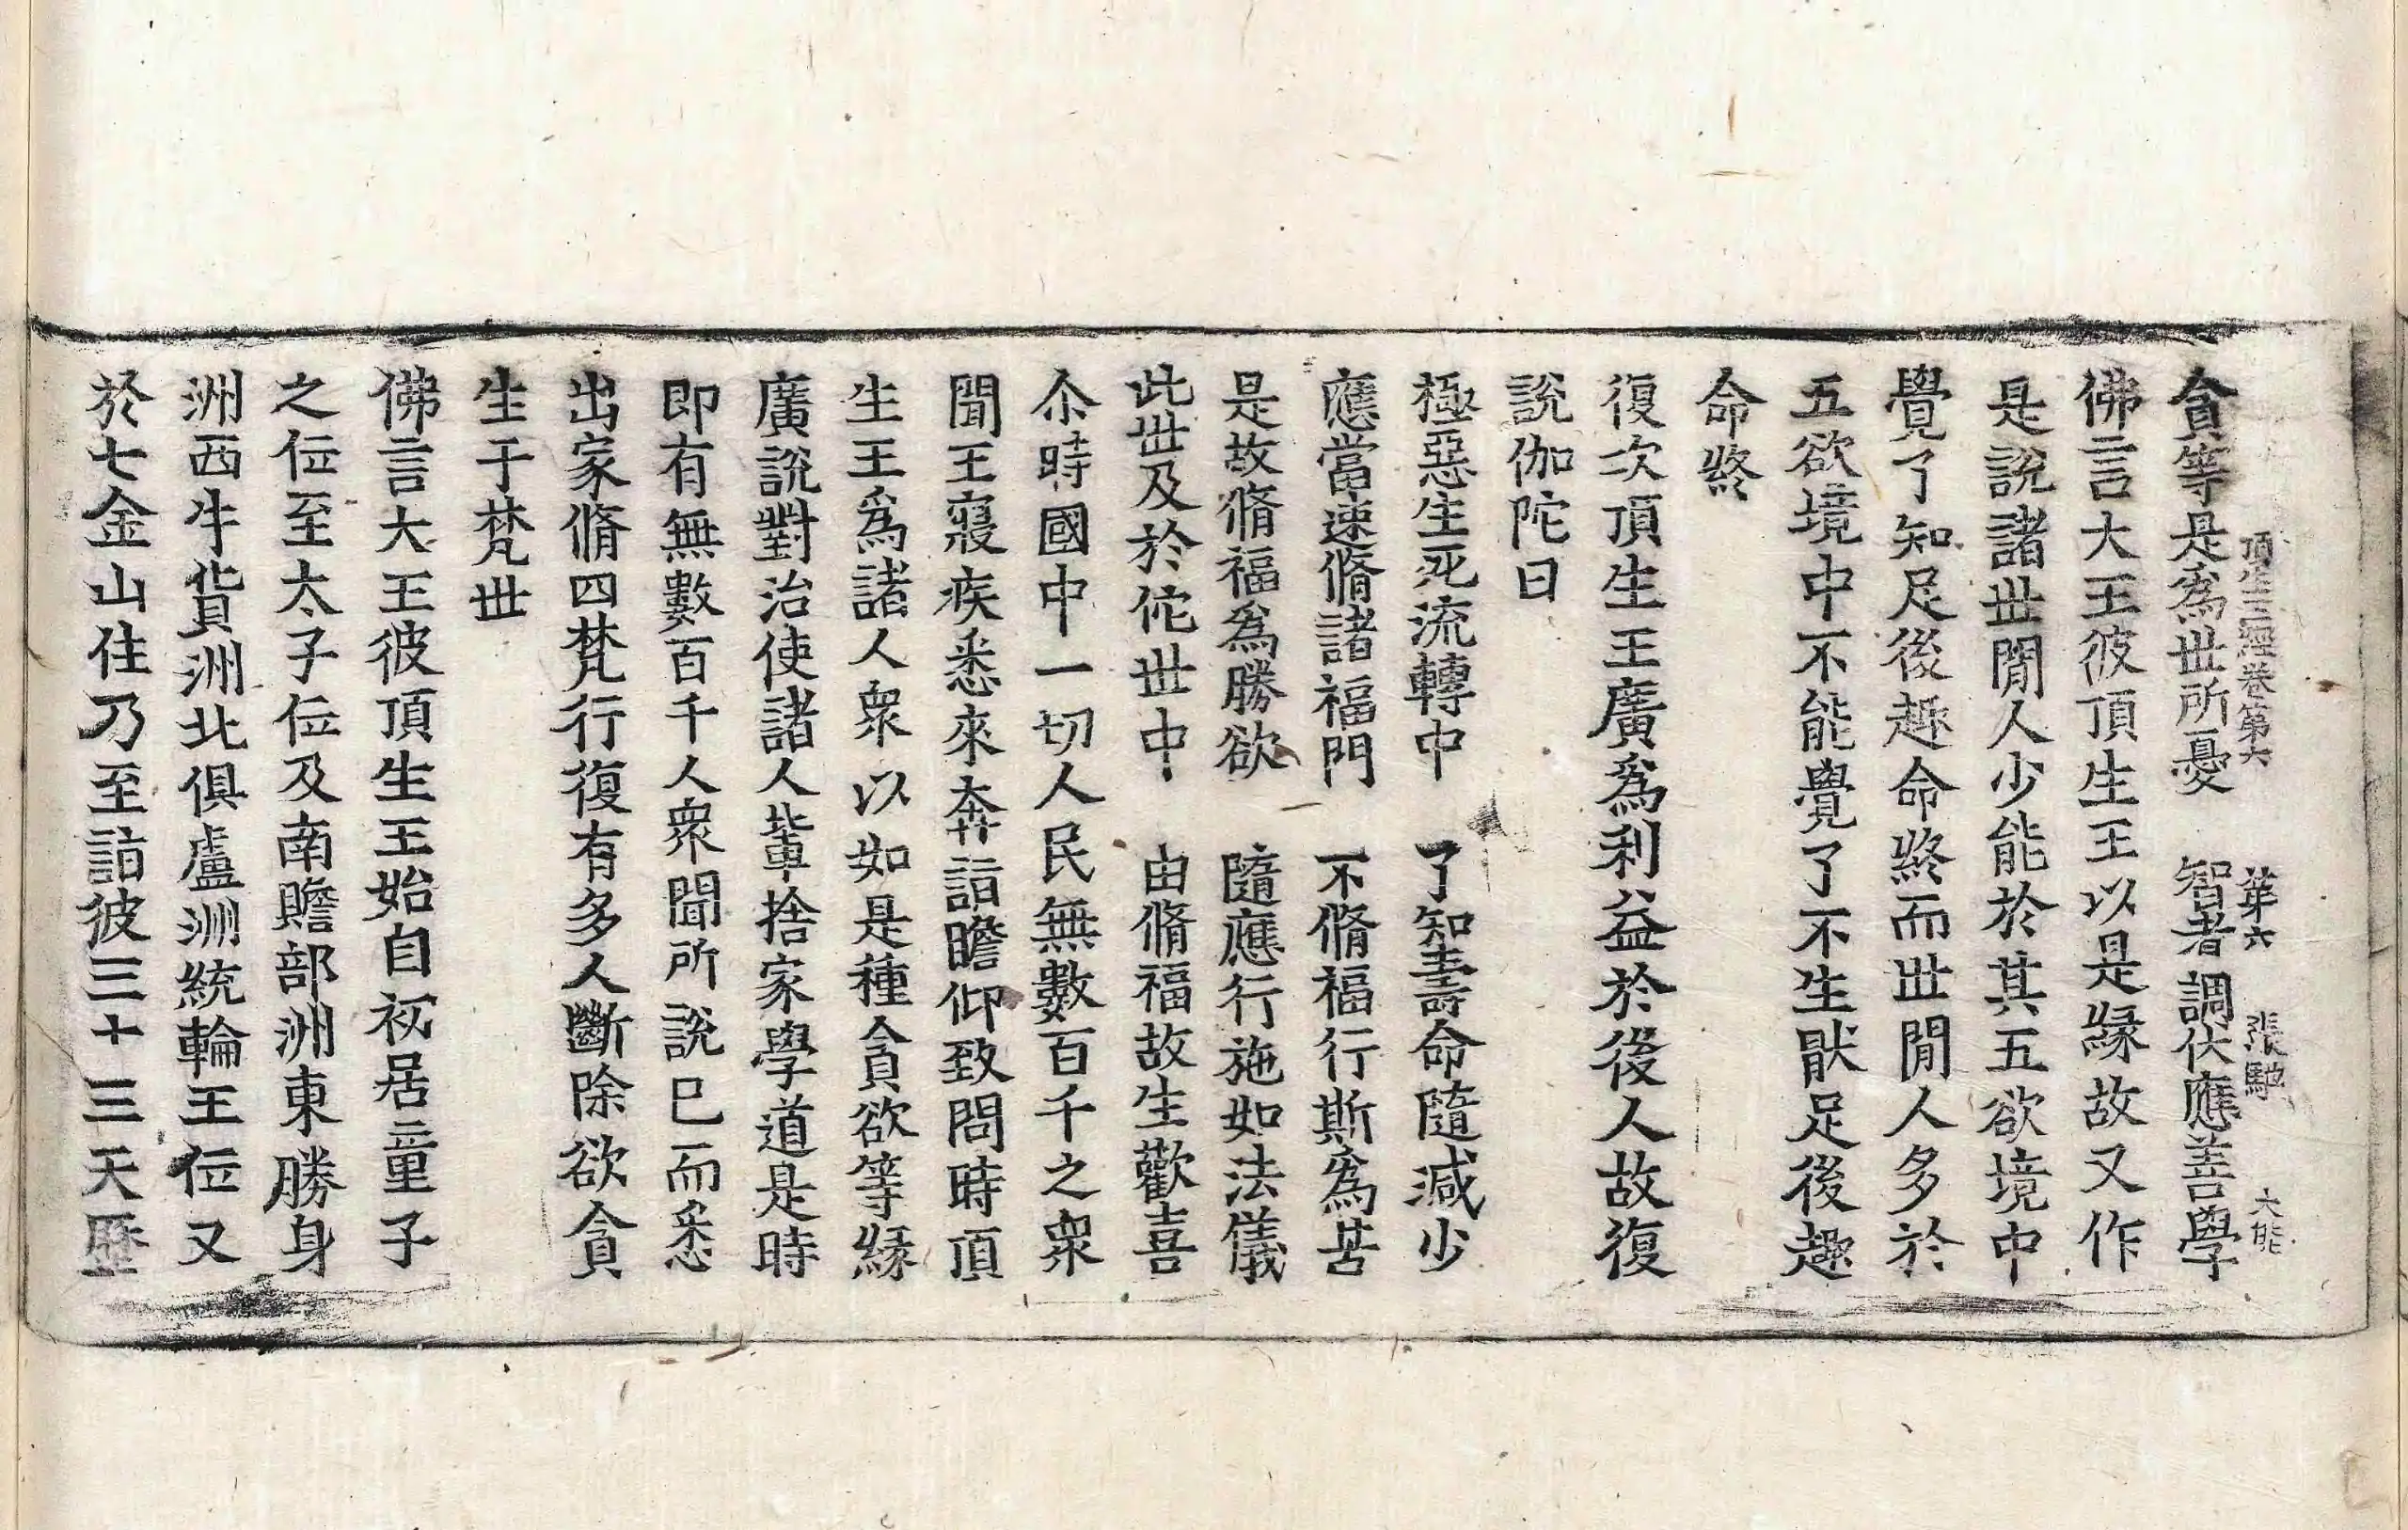 頂生王經卷第六 第六 張 馳 大能
貪等是爲世所憂 智者調伏應善學
佛言大王彼頂生王以是緣故又作
是說諸世閒人少能於其五欲境中
覺了知足後趣命終而世閒人多於
五欲境中不能覺了不生猒足後趣
命終
復次頂生王廣爲利益於後人故復
說伽陀曰
極惡生死流轉中 了知壽命隨減少
應當速脩諸福門 不脩福行斯爲苦
是故脩福爲勝欲 隨應行施如法儀
此世及於佗世中 由脩福故生歡喜
尒時國中一切人民無數百千之衆
聞王寢疾悉來奔詣瞻仰致問時頂
生王爲諸人衆以如是種貪欲等緣
廣說對治使諸人輩捨家學道是時
即有無數百千人衆聞所說已而悉
出家脩四梵行復有多人斷除欲貪
生于梵世
佛言大王彼頂生王始自初居童子
之位至太子位及南贍部洲東勝身
洲西牛貨洲北俱盧洲統輪王位又
於七金山住乃至詣彼三十三天歷